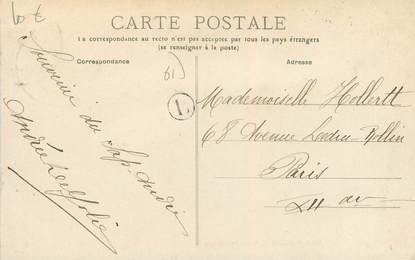 CARTE POSTALE
La correspondance au recto n'est pas acceptée par tous les pays étrangers
(se renseigner à la poste)
Correspondance
Adresse
Souvenir du Sap
L
Mademoiselle
68 Avenue Ledru-Rollin
Paris